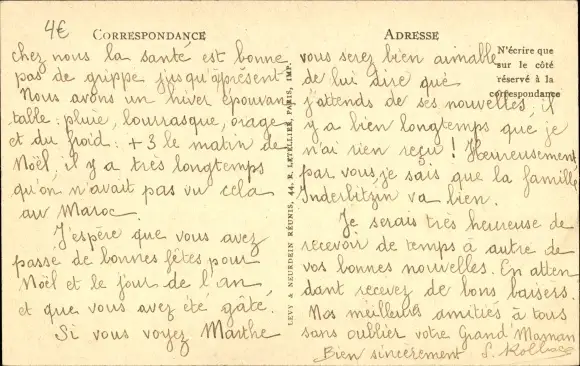 4€
CORRESPONDANCE
chez nous la santé est bonne
pas de grippe jusqu'àprésent
Nous avons un hiver épouvan
table; pluie, bourrasque, orage
et du froid: +3 le matin de
Noël, il y a très longtemps
qu'on n'avait pas vu cela
au Maroc.
J'espère que vous avez
passé de bonnes fêtes pour
Noël et le jour de l'an
et que vous avez été gâté.
Si vous voyez Marthe
LEVY & NEURDEIN RÉUNIS, 44, R. LETELLIER, PARIS, IMP.
ADRESSE
N'écrire que
sur le côté
réservé à la
correspondance
vous serez bien aimable
de lui dire que
j'attends de ses nouvelles, il
y a bien longtemps que je
n'ai rien reçu! Heureusement
par vous je sais que la famille
Inderbitzin va bien.
Je serais très heureuse de
recevoir de temps à autre de
vos bonnes nouvelles. En atten
dant recevez de bons baisers.
Nos meilleurs amitiés à tous
sans oublier votre Grand'Maman
Bien sincèrement S.